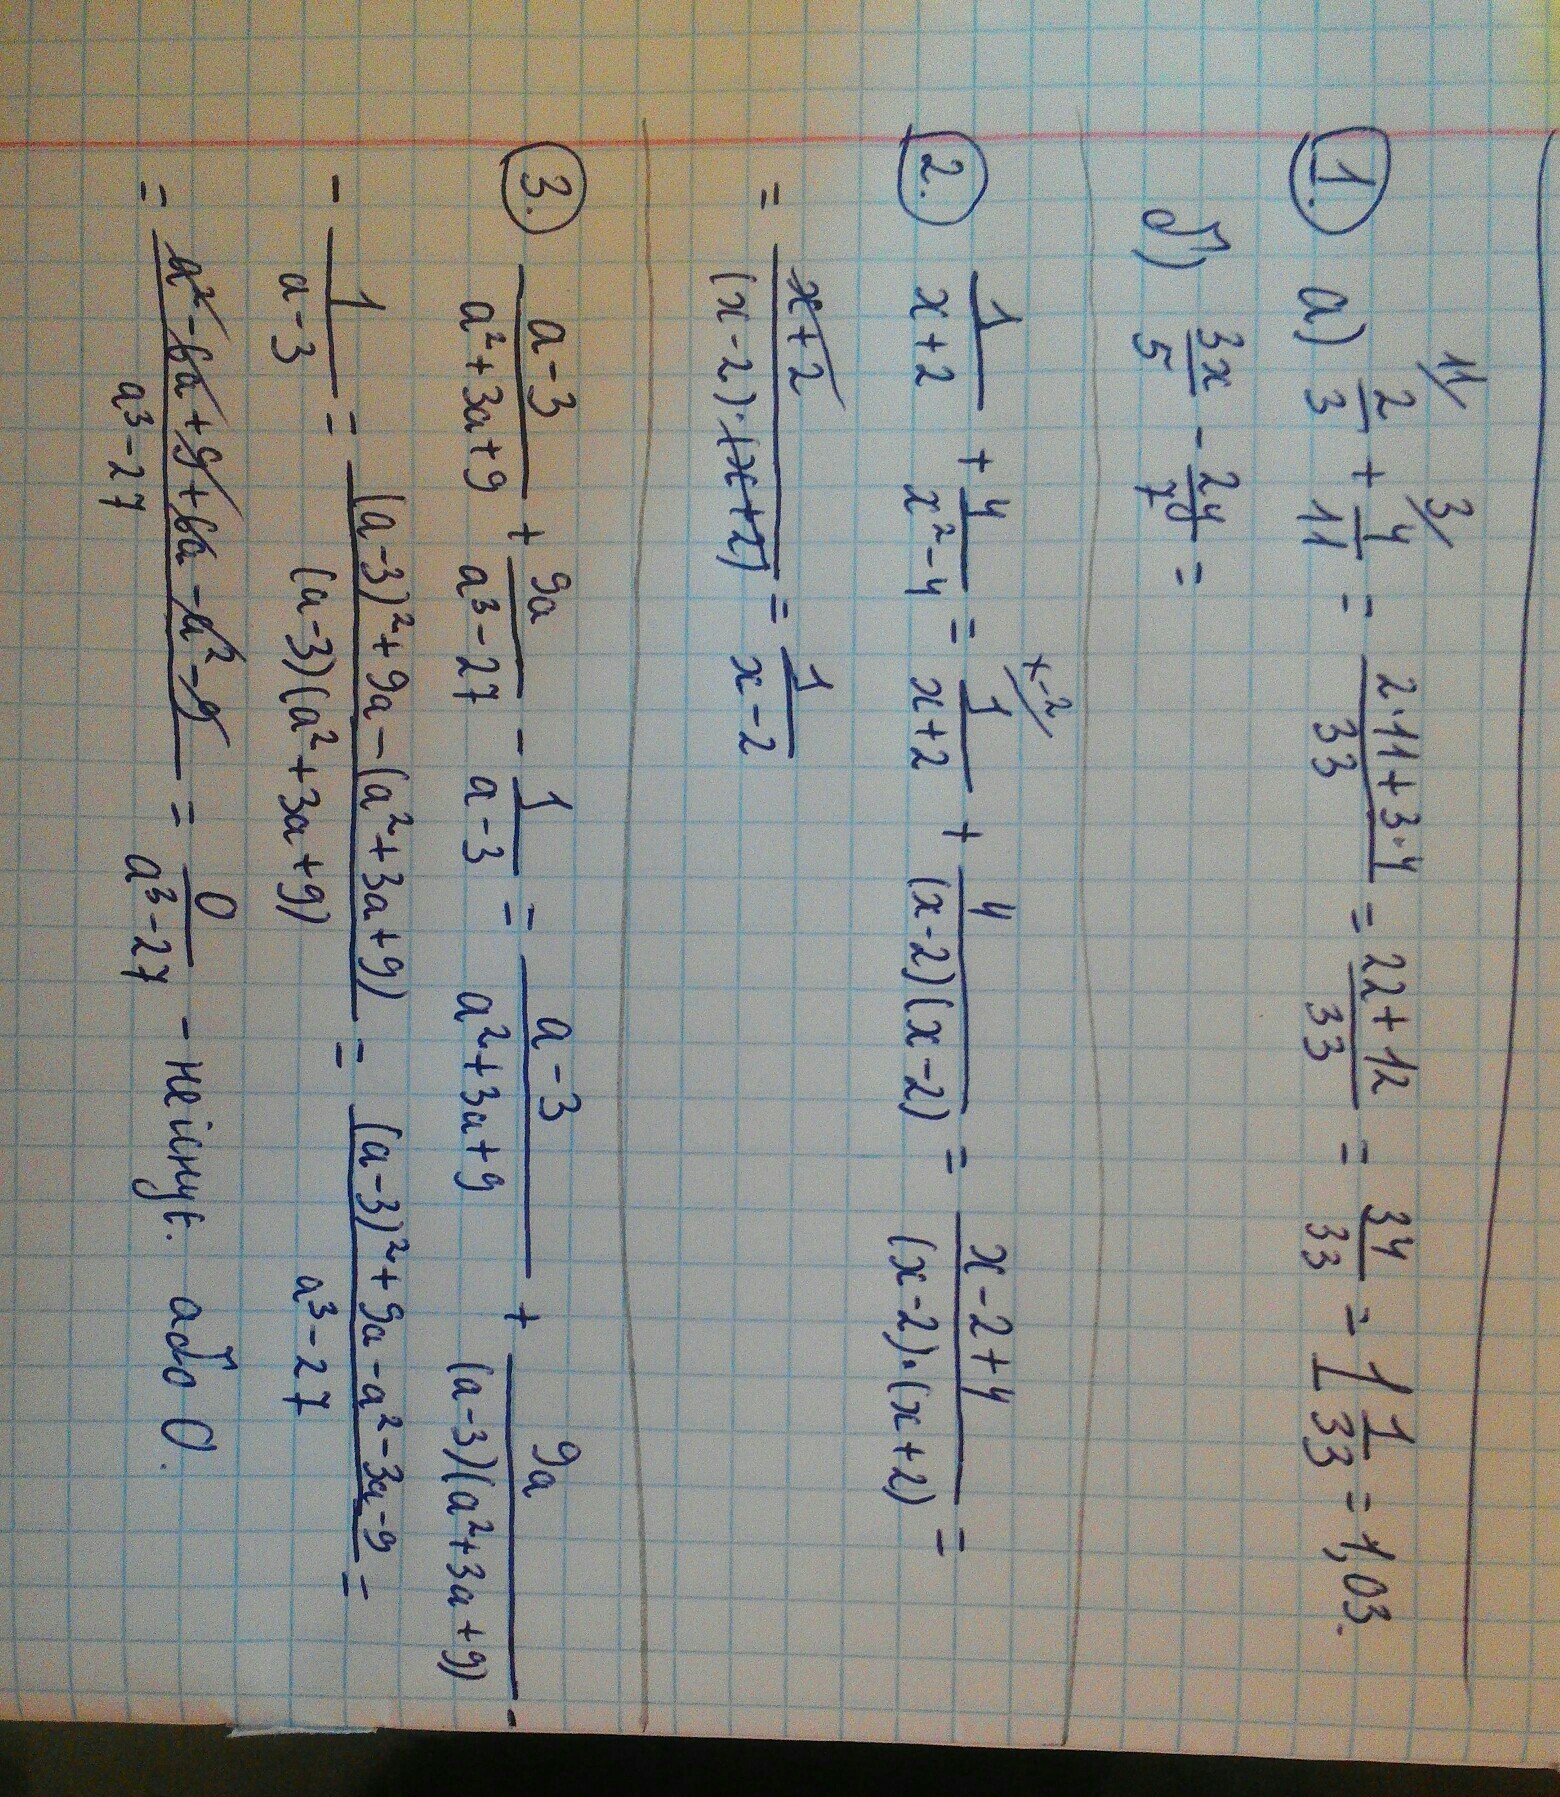 11/ 3/
1. а) 2/3 + 4/11 = (2·11+3·4)/33 = (22+12)/33 = 34/33 = 1 1/33 = 1,03.
б) 3x/5 - 2y/7 =
x-2/
2. 1/(x+2) + 4/(x²-4) = 1/(x+2) + 4/((x-2)(x-2)) = (x-2+4)/((x-2)·(x+2)) =
= (x+2)/((x-2)·(x+2)) = 1/(x-2)
3. (a-3)/(a²+3a+9) + 9a/(a³-27) - 1/(a-3) = (a-3)/(a²+3a+9) + 9a/((a-3)(a²+3a+9)) -
- 1/(a-3) = ((a-3)²+9a-(a²+3a+9))/((a-3)(a²+3a+9)) = ((a-3)²+9a-a²-3a-9)/(a³-27) =
= (a²-6a+9+6a-a²-9)/(a³-27) = 0/(a³-27) - не існує. або 0.